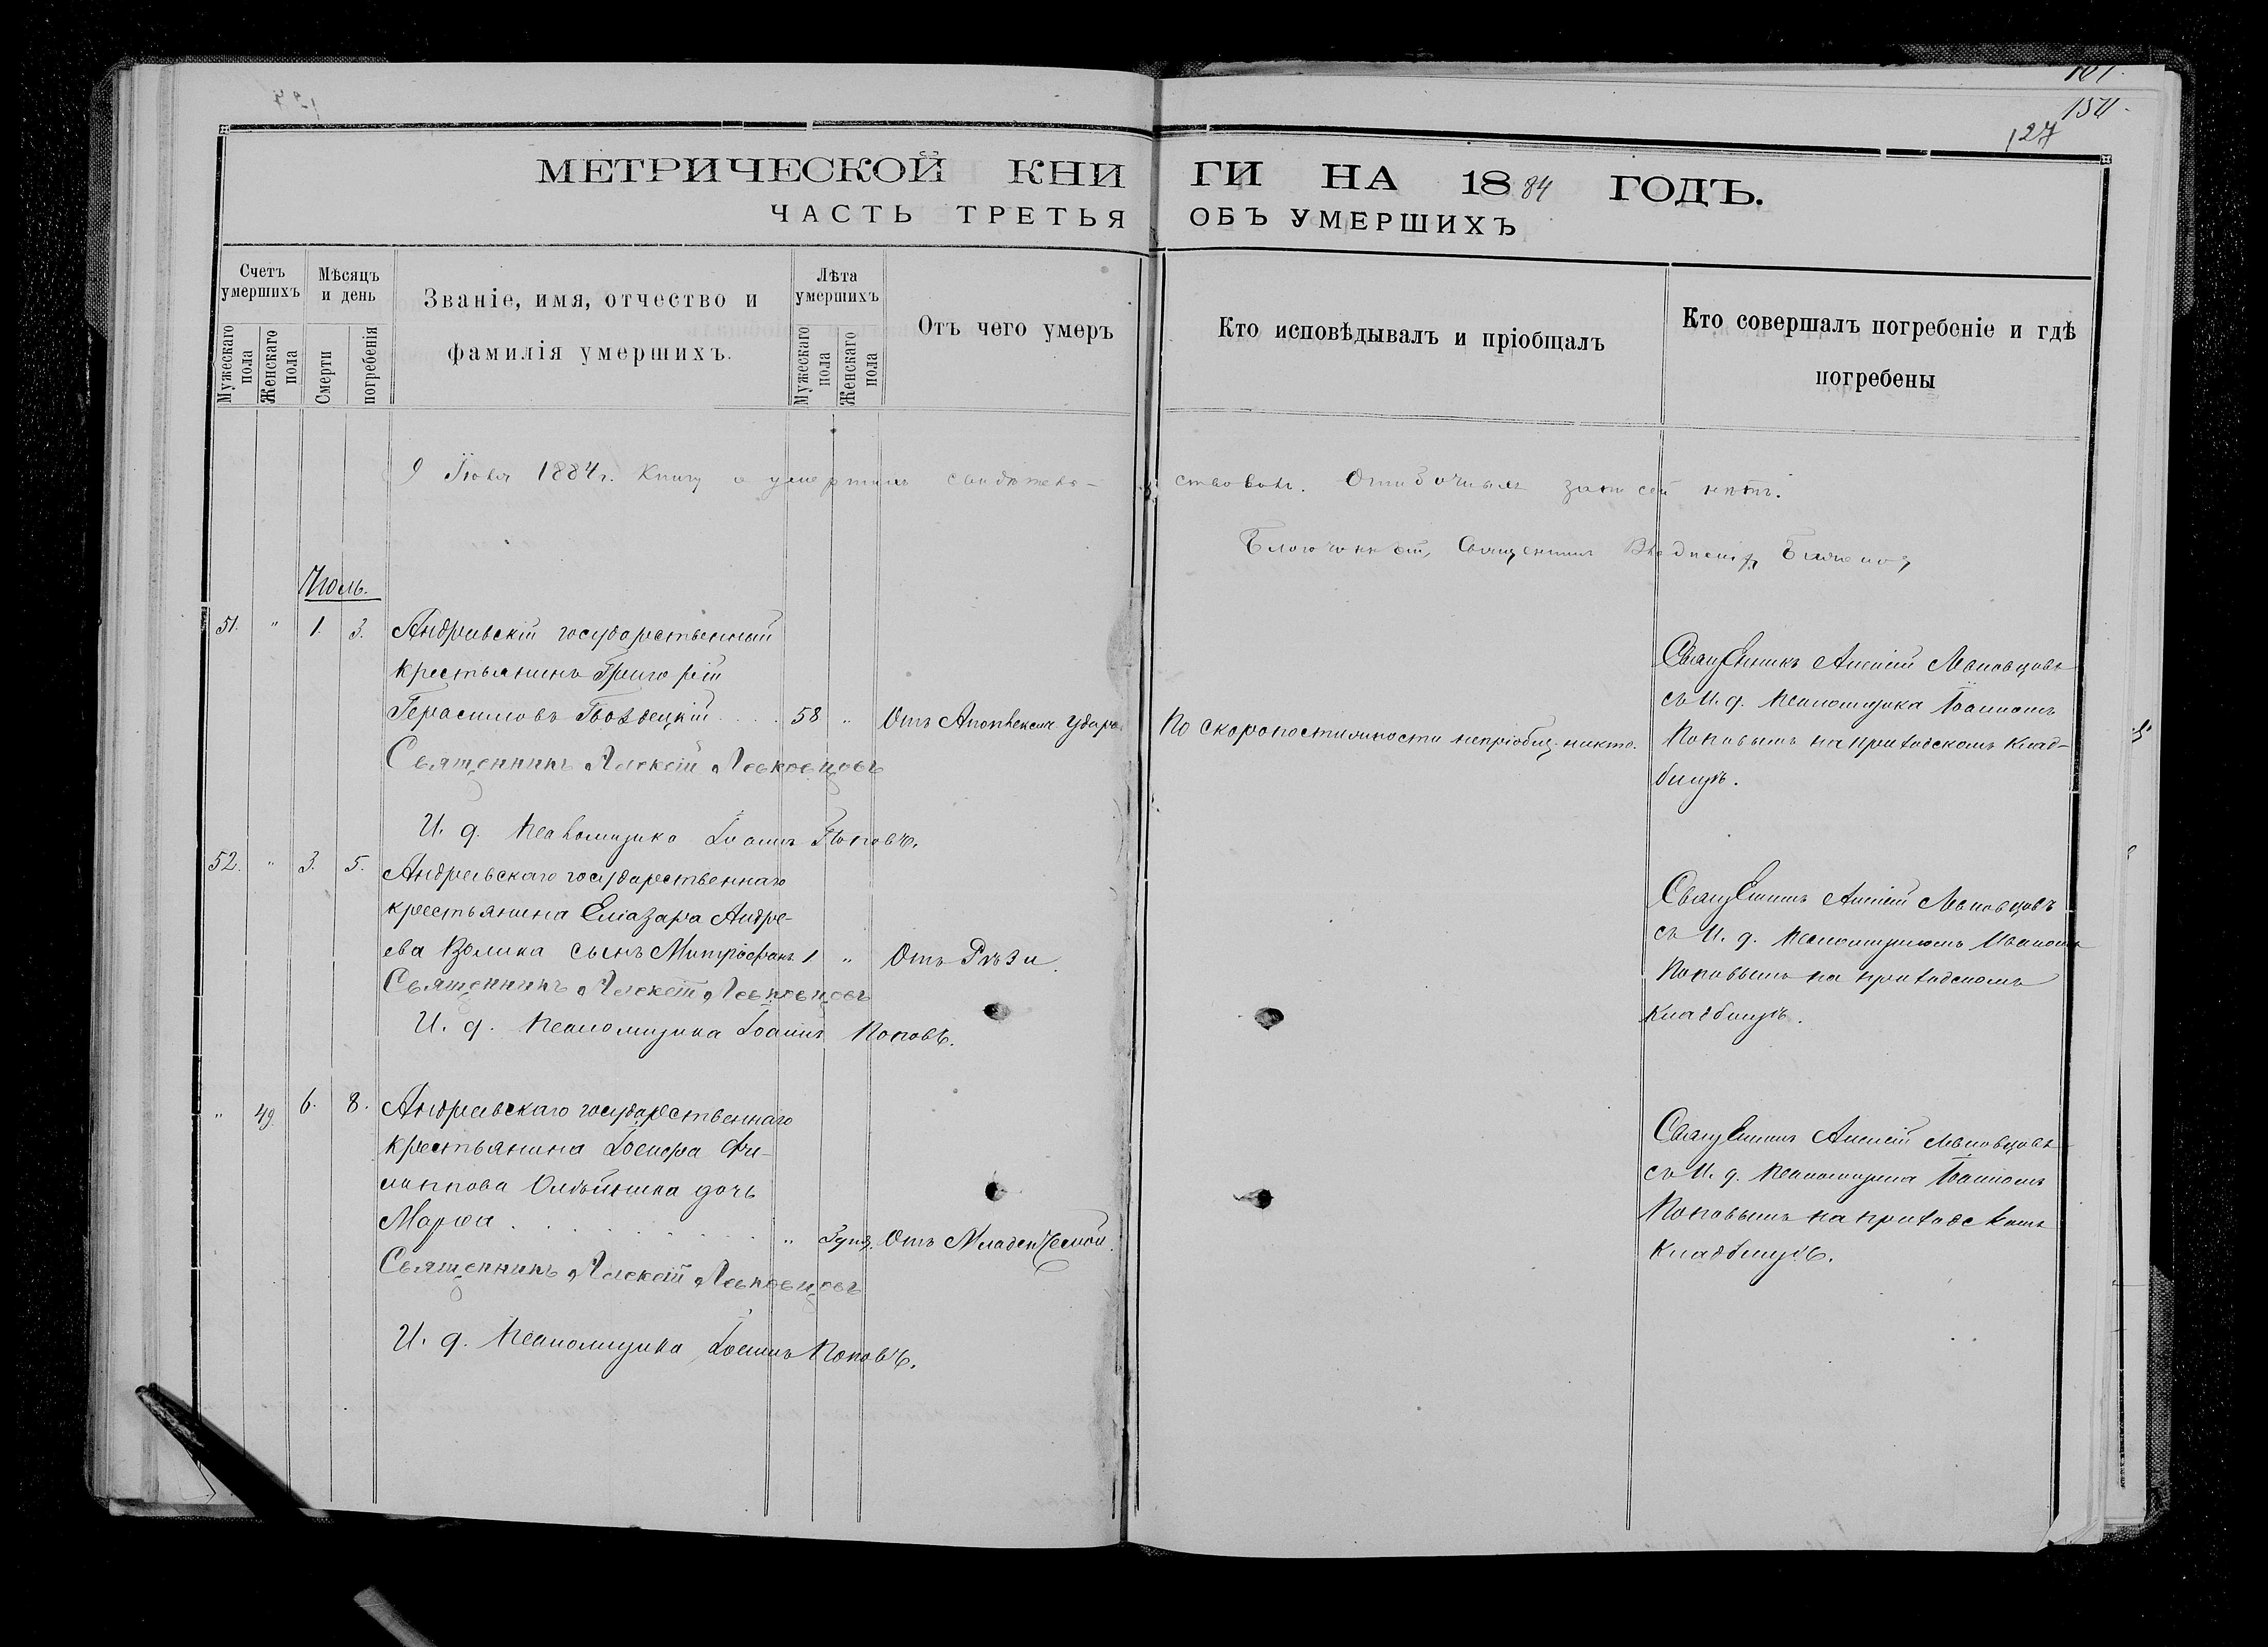 150
127
МЕТРИЧЕСКОЙ КНИ ГИ НА 1884 ГОДЪ.
ЧАСТЬ ТРЕТЬЯ ОБЪ УМЕРШИХЪ
Счетъ умершихъ
Мужескаго пола
Женскаго пола
Мѣсяцъ и день
Смерти
погребенія
Званіе, имя, отчество и
фамилія умершихъ.
Лѣта умершихъ
Мужескаго пола
Женскаго пола
Отъ чего умеръ
Кто исповѣдывалъ и пріобщалъ
Кто совершалъ погребеніе и гдѣ
погребены
9 Іюля 1884 г. Книгу о умершихъ свидѣтель-ствовалъ. Ошибочныхъ записей нѣтъ.
Благочинный, Священникъ
Июль.
51. " 1. 3. Андреевскій государственный
крестьянинъ Григорій
Герасимовъ Гвоздецкій . . . 58 " Отъ Апоплексич. удара
По скоропостижности непріобщ. никто.
Священникъ Алексій Левковцовъ
съ И. д. Псаломщика Іоанномъ
Поповымъ на приходскомъ клад-
бищѣ.
Священникъ Алексѣй Левковцовъ
И. д. Псаломщика Іоаннъ Поповъ.
52. " 3. 5. Андреевскаго государственнаго
крестьянина Еліазара Андре-
ева Волика сынъ Митрофанъ 1 " Отъ Рѣзи.
Священникъ Алексій Левковцовъ
съ И. д. Псаломщикомъ Иваномъ
Поповымъ на приходскомъ
кладбищѣ.
Священникъ Алексѣй Левковцовъ
И. д. Псаломщика Іоаннъ Поповъ.
" 49. 6. 8. Андреевскаго государственнаго
крестьянина Іосифа Фи-
липпова Олѣйника дочь
Марфа . . . . . . " Отъ Младенческой.
Священникъ Алексій Левковцовъ
съ И. д. Псаломщика Іоанномъ
Поповымъ на приходскомъ
кладбищѣ.
Священникъ Алексѣй Левковцовъ
И. д. Псаломщика Іоаннъ Поповъ.